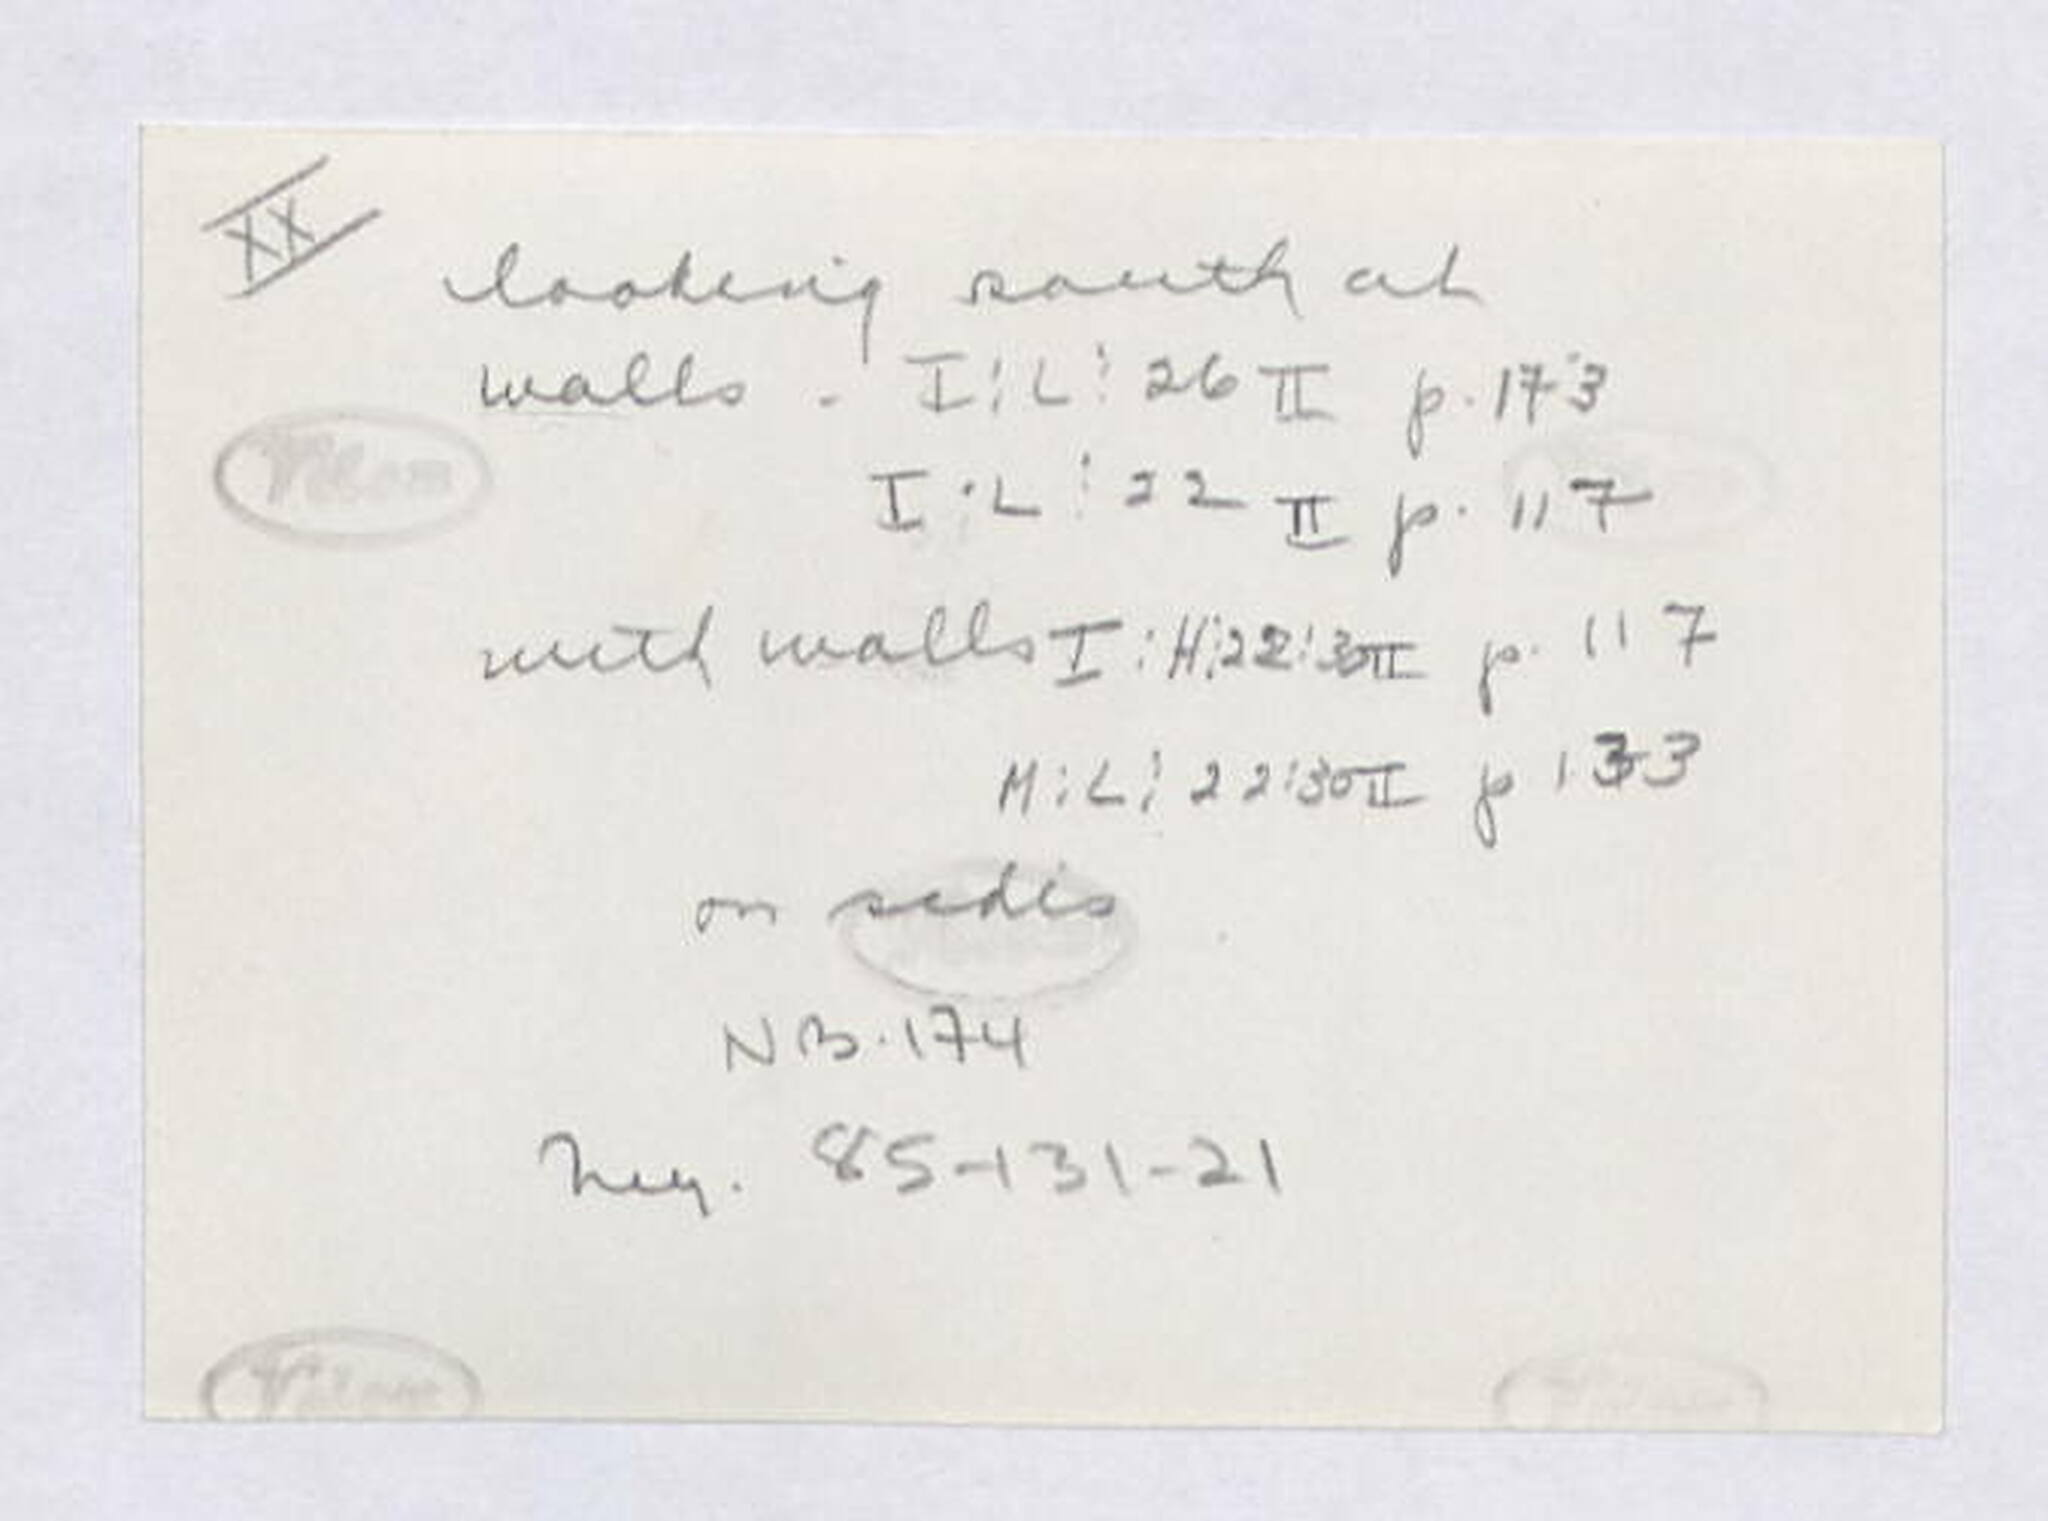 XX
looking south at
walls - I:L:26 II p. 173
I:L:22 II p. 117
with walls I:H:22:30 II p. 117
H:L:22:30 II p 133
on sides
NB. 174
Neg. 85-131-21